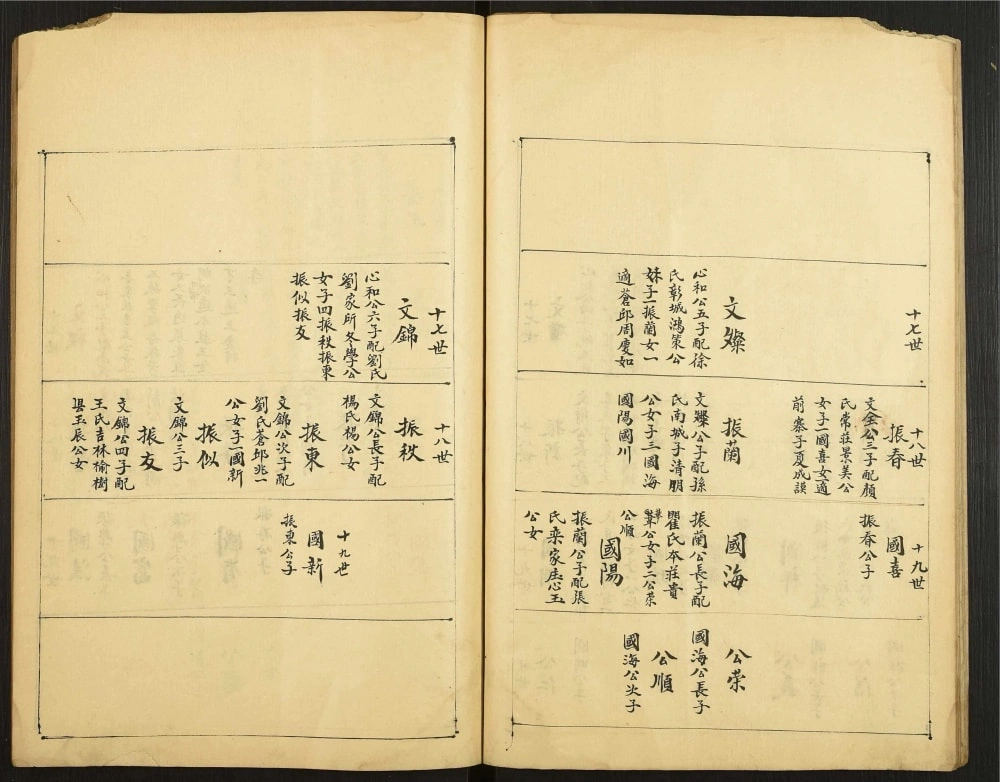 十七世
文燦
心和公五子配徐
氏彰城鴻策公
妹子一振蘭女一
適蒼邱周慶如
十八世
振春
文金公三子配顏
氏常莊景美公
女子一國喜女適
前寨子夏成謨
振蘭
文燦公子配孫
氏南城子清朋
公女子三國海
國陽國川
十九世
國喜
振春公子
國海
振蘭公長子配
瞿氏本莊貴
公女子二公荣
公順
國陽
振蘭公子配張
氏栾家庄心玉
公女
公荣
國海公長子
公順
國海公次子
十七世
文錦
心和公六子配劉氏
劉家所冬學公
女子四振秩振東
振似振友
十八世
振秩
文錦公長子配
楊氏楊公女
振東
文錦公次子配
劉氏蒼邱兆一
公女子一國新
振似
文錦公三子
振友
文錦公四子配
王氏吉林榆樹
县玉辰公女
十九世
國新
振東公子